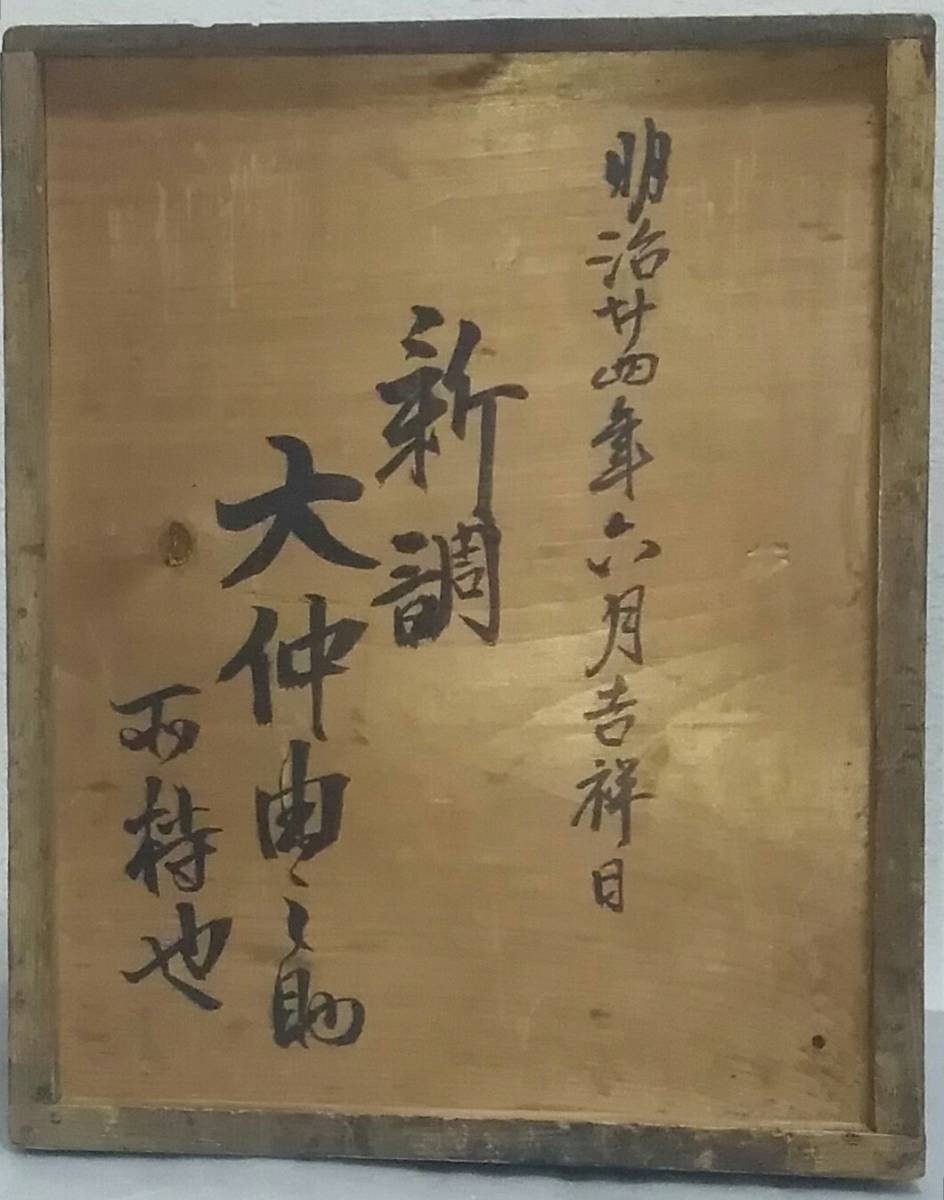 明治廿四年六月吉祥日
新調
大仲由之助
所持也